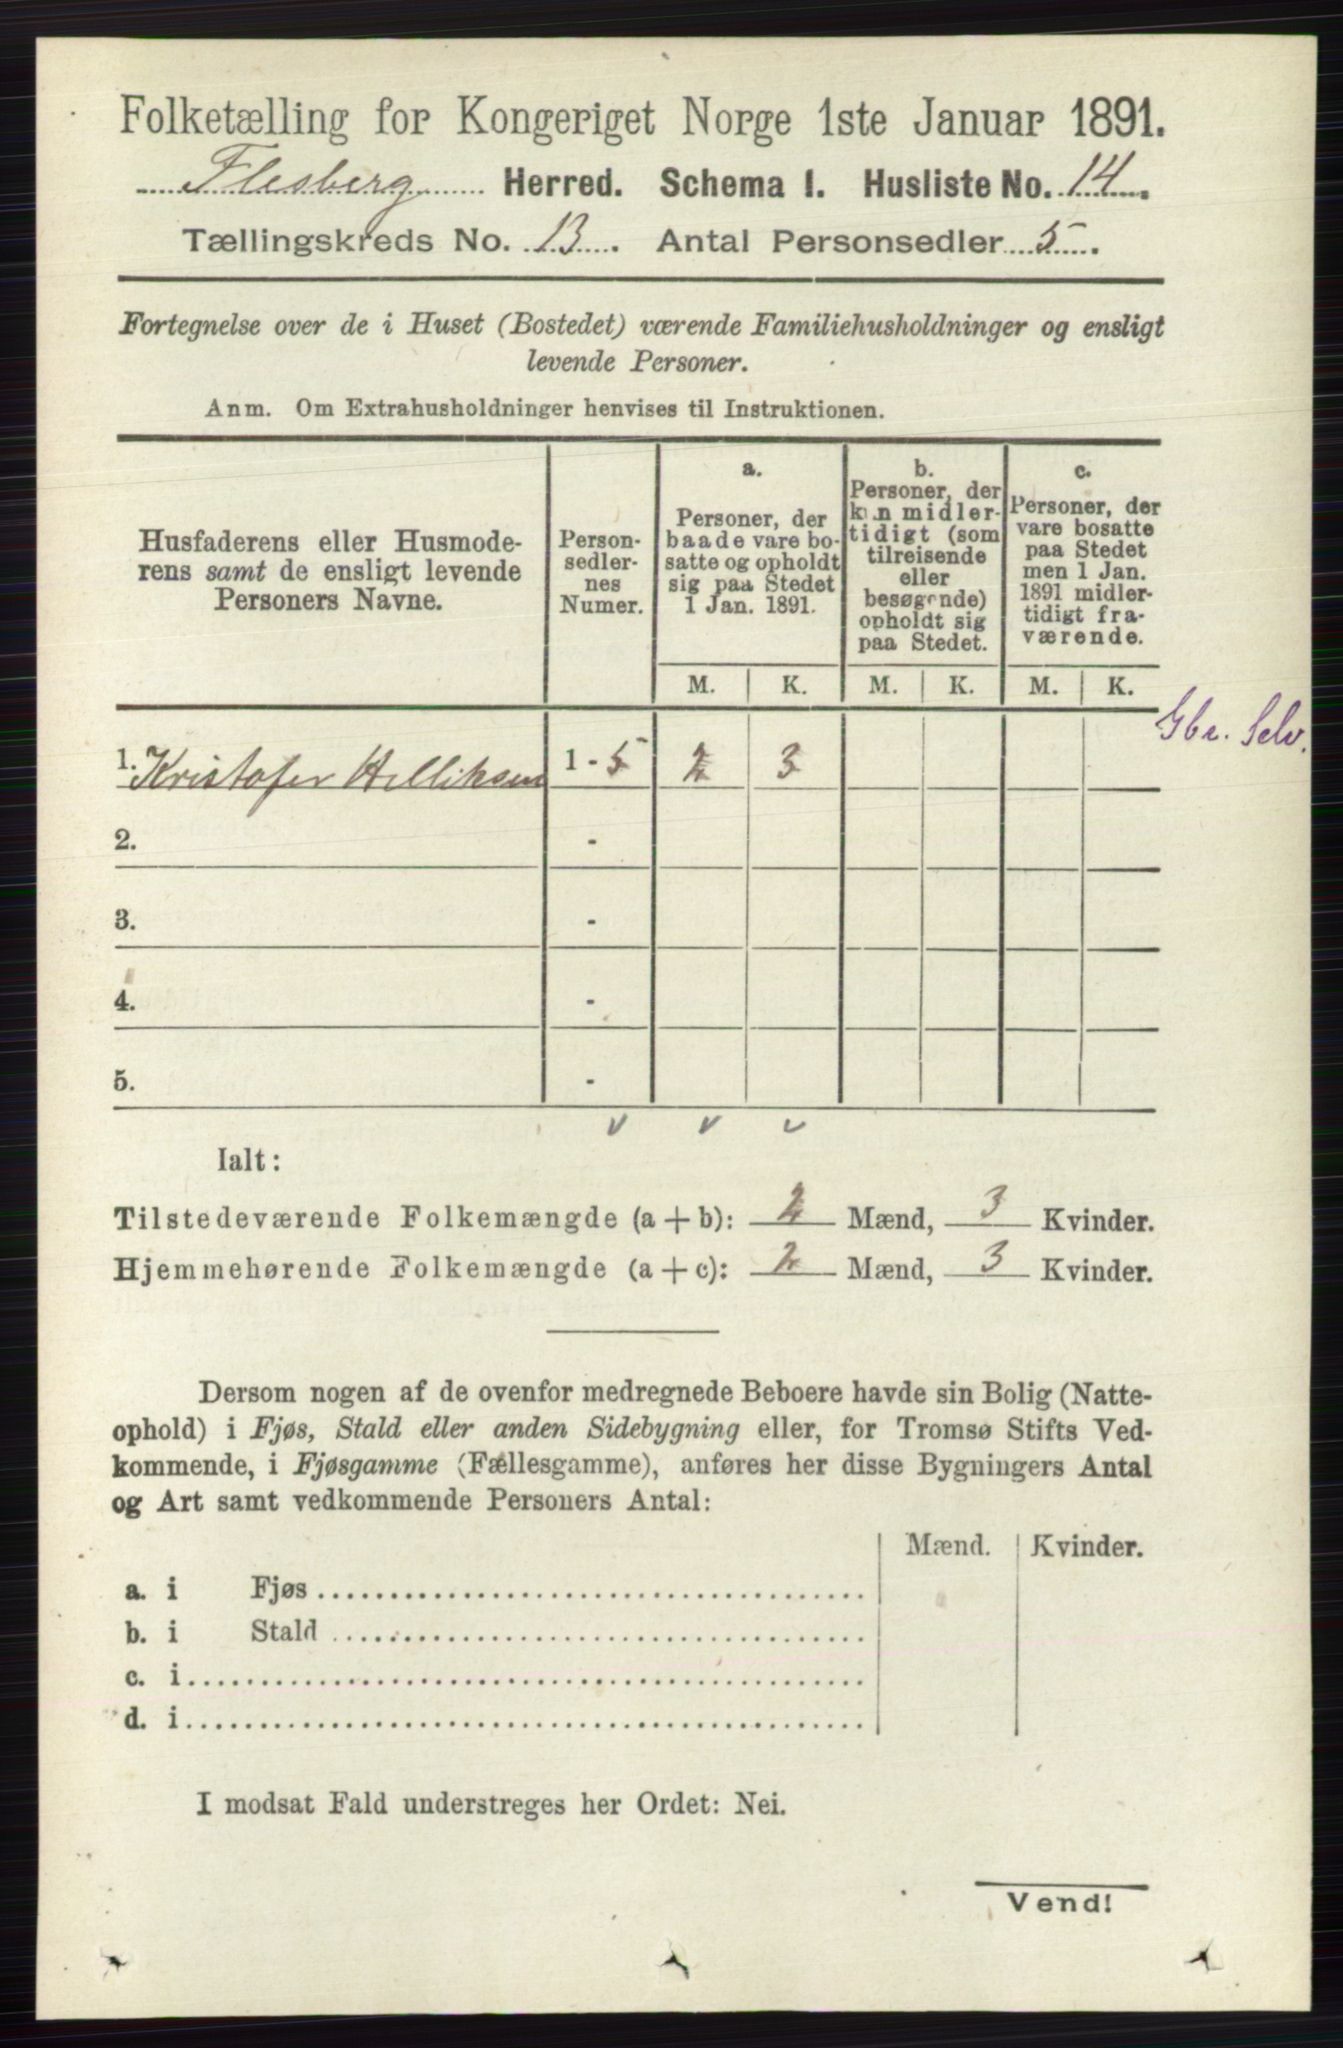 Folketælling for Kongeriget Norge 1ste Januar 1891.
Flesberg Herred. Schema 1. Husliste No. 14.
Tællingskreds No. 13. Antal Personsedler 5.
Fortegnelse over de i Huset (Bostedet) værende Familiehusholdninger og ensligt
levende Personer.
Anm. Om Extrahusholdninger henvises til Instruktionen.
Husfaderens eller Husmode-
rens samt de ensligt levende
Personers Navne.
Person-
sedler-
nes
Numer.
a.
Personer, der
baade vare bo-
satte og opholdt
sig paa Stedet
1 Jan. 1891.
b.
Personer, der
kun midler-
tidigt (som
tilreisende
eller
besøgende)
opholdt sig
paa Stedet.
c.
Personer, der
vare bosatte
paa Stedet
men 1 Jan.
1891 midler-
tidigt fra-
værende.
M. K. M. K. M. K.
Gbr. Selv.
1. Kristofer Helliksen 1 - 5 2 3
2. -
3. -
4. -
5. -
Ialt:
Tilstedeværende Folkemængde (a + b): 2 Mænd, 3 Kvinder.
Hjemmehørende Folkemængde (a + c): 2 Mænd, 3 Kvinder.
Dersom nogen af de ovenfor medregnede Beboere havde sin Bolig (Natte-
ophold) i Fjøs, Stald eller anden Sidebygning eller, for Tromsø Stifts Ved-
kommende, i Fjøsgamme (Fællesgamme), anføres her disse Bygningers Antal
og Art samt vedkommende Personers Antal:
Mænd. Kvinder.
a. i Fjøs
b. i Stald
c. i
d. i
I modsat Fald understreges her Ordet: Nei.
Vend!